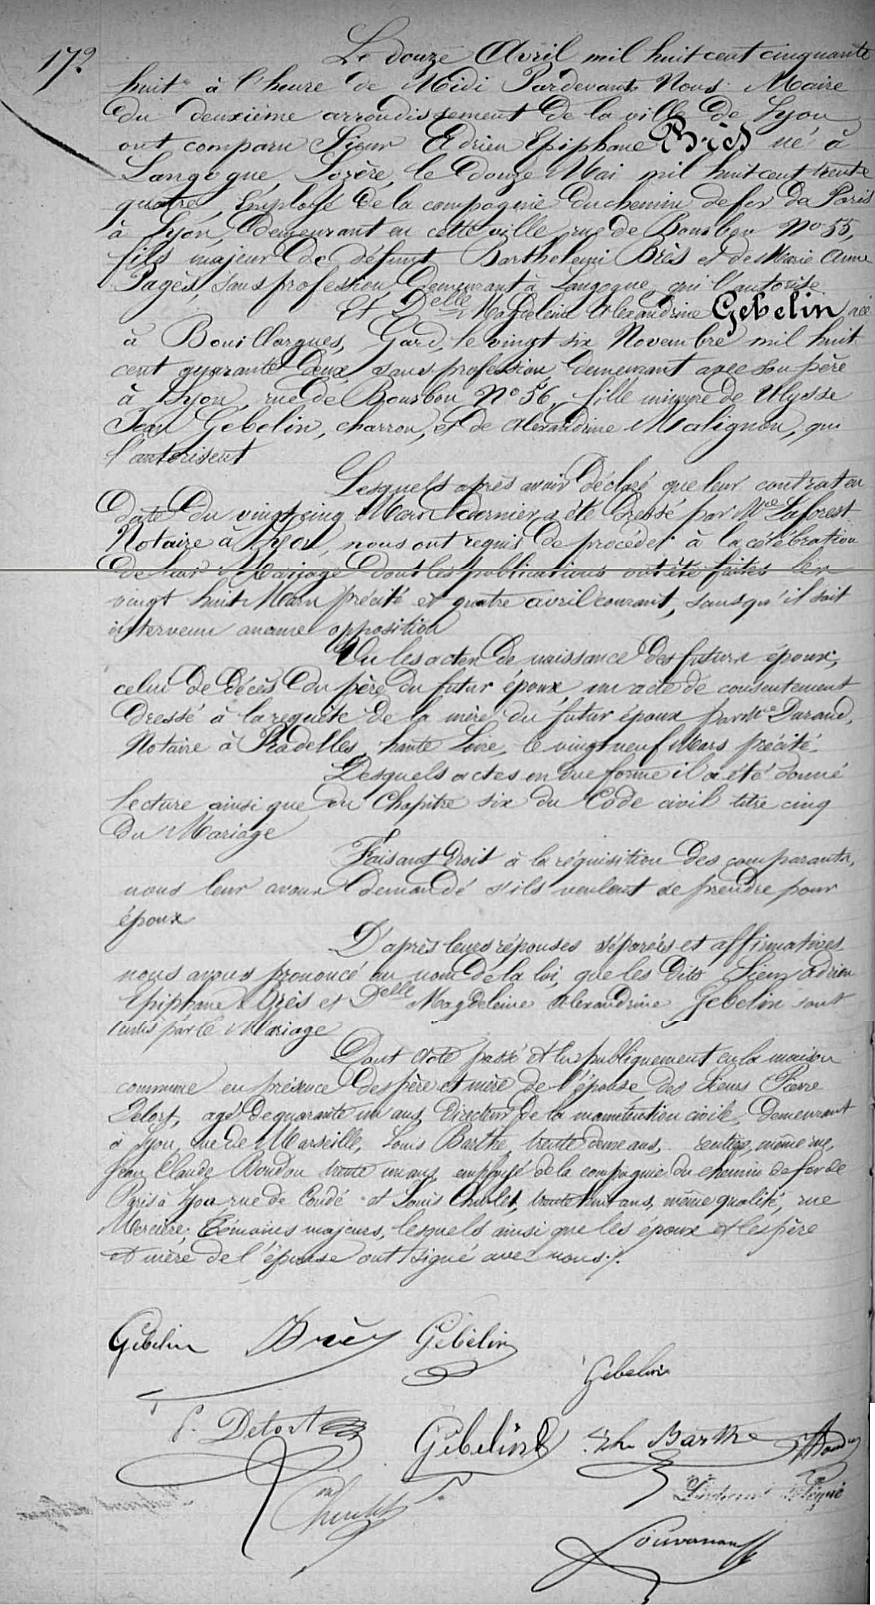 172.
Le douze Avril mil huit cent cinquante
huit à l'heure de Midi Pardevant Nous Maire
du deuxième arrondissement de la ville de Lyon
ont comparu Sieur Adrien Epiphane Brès né à
Langogne Lozère, le douze Mai mil huit cent trente
quatre, Employé de la compagnie du chemin de fer de Paris
à Lyon, demeurant en cette ville rue de Bourbon No 55,
fils majeur de défunt Barthelemi Brès et de Marie Anne
Pagès, sans profession demeurant à Langogne, qui l'autorise
Et Delle Magdeleine Alexandrine Gebelin, née
à Bouillargues, Gard, le vingt six Novembre mil huit
cent quarante deux sans profession demeurant avec son père
à Lyon, rue de Bourbon No 56, fille mineure de Ulysse
Jean Gebelin, charron, et de Alexandrine Malignon, qui
l'autorisent
Lesquels après avoir déclaré que leur contrat en
date du vingt cinq Mars dernier a été dressé par Me Laforest
Notaire à Lyon, nous ont requis de procéder à la célébration
de leur Mariage dont les publications ont été faites les
vingt huit Mars précité et quatre avril courant, sans qu'il soit
intervenu aucune opposition
Vu les actes de naissance des futurs époux,
celui de décès du père du futur époux un acte de consentement
dressé à la requête de la mère du futur époux par Me Durand,
Notaire à Pradelles, haute Loire, le vingt neuf Mars précité.
Desquels actes en due forme il a été donné
lecture ainsi que du Chapitre six du Code civil titre cinq
du Mariage
Faisant droit à la réquisition des comparants,
nous leur avons demandé s'ils veulent se prendre pour
époux
D'après leurs réponses séparées et affirmatives
nous avons prononcé au nom de la loi, que les dits Sieur Adrien
Epiphane Brès et Delle Magdeleine Alexandrine Gebelin sont
unis par le Mariage
Dont acte passé et lu publiquement en la maison
commune en présence des père et mère de l'épouse des Sieurs Pierre
Delort, agé de quarante un ans, directeur de la manutention civile, demeurant
à Lyon, rue de Marseille, Louis Barthe trente deux ans, rentier, même rue,
Jean Claude Boudou trente un ans, employé de la compagnie du chemin de fer de
Paris à Lyon rue de Condé et Louis Churlet, trente huit ans, même qualité, rue
Mercière; témoins majeurs, lesquels ainsi que les époux et les père
et mère de l'épouse ont signé avec nous./.
Gebelin Brès Gebelin
Gebelin
P. Delort Gebelin Barthe Boudou
Churlet